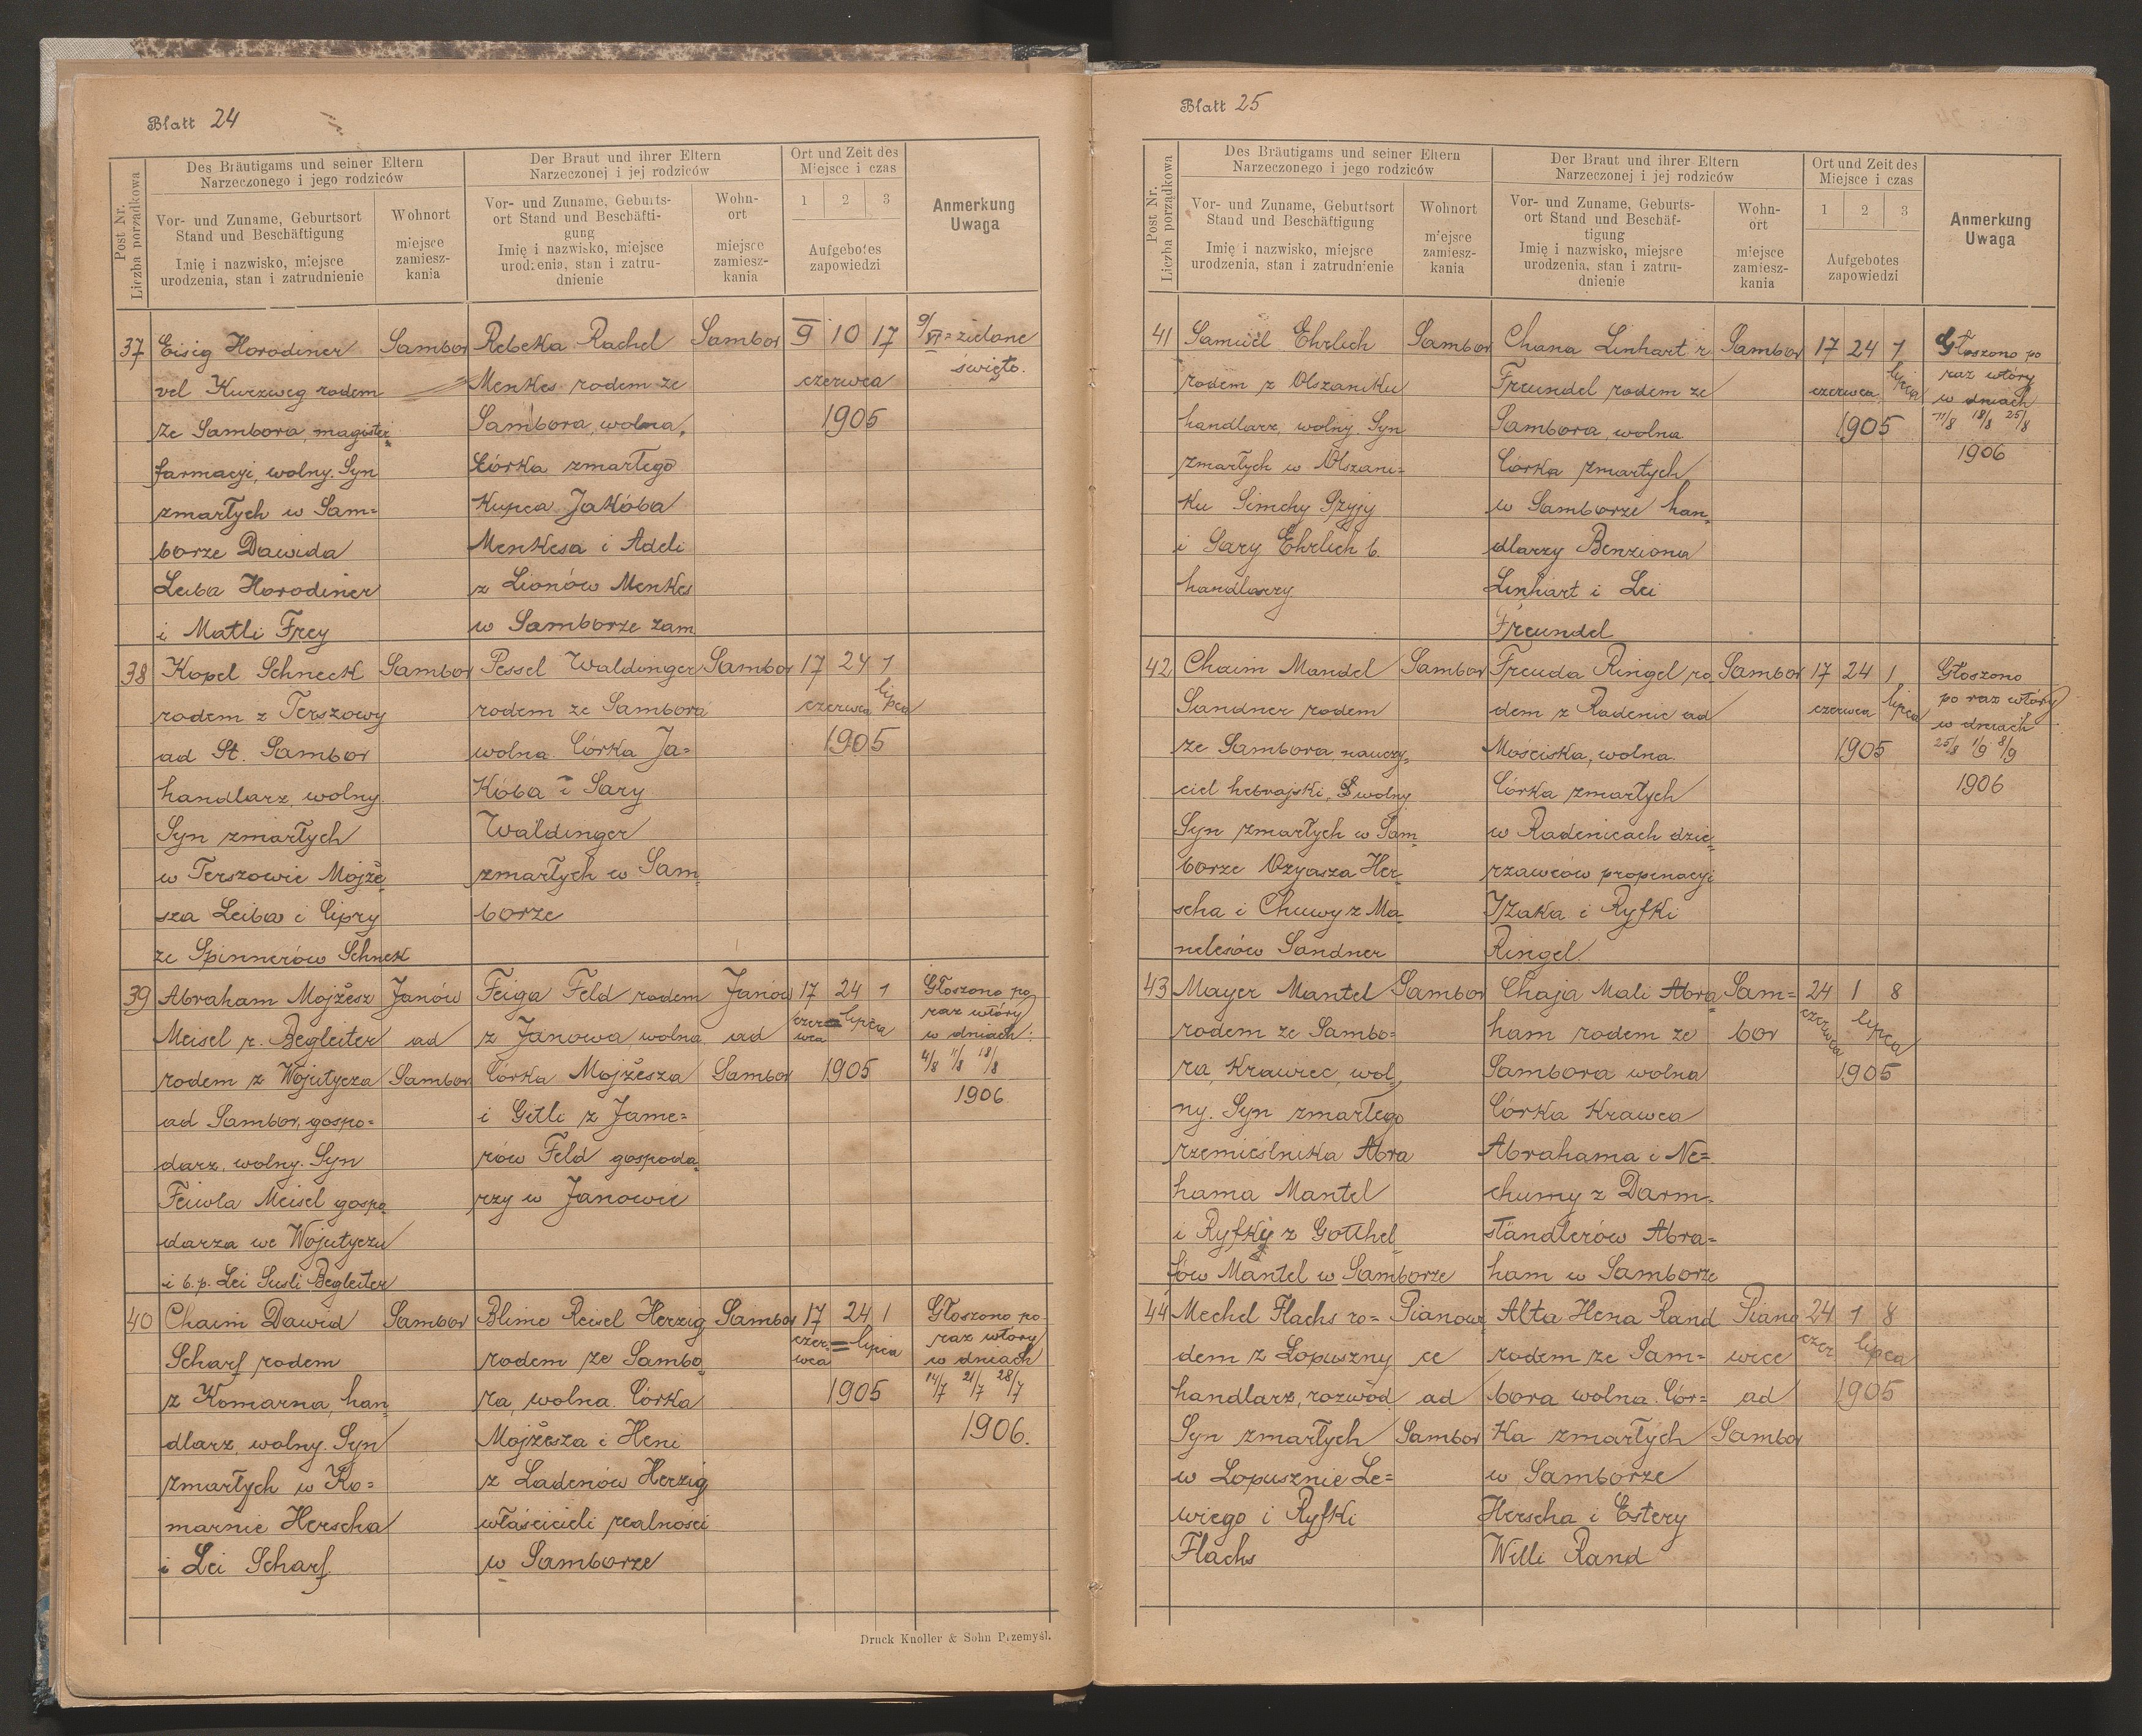 Blatt 24
Post Nr.
Liczba porządkowa
Des Bräutigams und seiner Eltern
Narzeczonego i jego rodziców
Der Braut und ihrer Eltern
Narzeczonej i jej rodziców
Ort und Zeit des
Miejsce i czas
Anmerkung
Uwaga
Vor- und Zuname, Geburtsort
Stand und Beschäftigung
Imię i nazwisko, miejsce
urodzenia, stan i zatrudnienie
Wohnort
miejsce
zamiesz-
kania
Vor- und Zuname, Geburts-
ort Stand und Beschäfti-
gung
Imię i nazwisko, miejsce
urodzenia, stan i zatru-
dnienie
Wohn-
ort
miejsce
zamiesz-
kania
1 2 3
Aufgebotes
zapowiedzi
37
Eisig Horodiner
vel Kurzweg rodem
ze Sambora, magister
farmacyi, wolny. Syn
zmarłych w Sam=
borze Dawida
Leiba Horodiner
i Matli Frey
Sambor
Rebeka Rachel
Menkes rodem ze
Sambora, wolna,
Córka zmarłego
Kupca Jakóba
Menkesa i Adeli
z Lionów Menkes
w Samborze zam
Sambor
9 10 17
czerwca
1905
9/VI = zielone
święto.
38
Kopel Schneck
rodem z Terszowy
ad St. Sambor
handlarz, wolny.
Syn zmarłych
w Terszowie Mojże
sza Leiba i Cipry
ze Spinnerów Schnek
Sambor
Pessel Waldinger
rodem ze Sambora
wolna. Córka Ja=
kóba i Sary
Waldinger
zmarłych w Sam
borze
Sambor
17 24 1
czerwca lipca
1905
39
Abraham Mojżesz
Meisel r. Begleiter
rodem z Wojutycza
ad Sambor, gospo=
darz, wolny. Syn
Feiwla Meisel gospo
darza we Wojutyczu
i b.p. Lei Susli Begleiter
Janów
ad
Sambor
Feiga Feld rodem
z Janowa, wolna
Córka Mojżesza
i Gitli z Jame=
rów Feld gospoda
rzy w Janowie
Janów
ad
Sambor
17 24 1
czer= lipca
wca
1905
Głoszono po
raz wtóry
w dniach:
4/8 11/8 18/8
1906
40
Chaim Dawid
Scharf rodem
z Komarna, han
dlarz, wolny. Syn
zmarłych w Ko=
marnie Herscha
i Lei Scharf
Sambor
Blime Reisel Herzig
rodem ze Sambo
ra, wolna. Córka
Mojżesza i Heni
z Ladenów Herzig
właścicieli realności
w Samborze
Sambor
17 24 1
czer= lipca
wca
1905
Głoszono po
raz wtóry
w dniach
14/7 21/7 28/7
1906.
Druck Knoller & Sohn Przemyśl.
Blatt 25
Post Nr.
Liczba porządkowa
Des Bräutigams und seiner Eltern
Narzeczonego i jego rodziców
Der Braut und ihrer Eltern
Narzeczonej i jej rodziców
Ort und Zeit des
Miejsce i czas
Anmerkung
Uwaga
Vor- und Zuname, Geburtsort
Stand und Beschäftigung
Imię i nazwisko, miejsce
urodzenia, stan i zatrudnienie
Wohnort
miejsce
zamiesz-
kania
Vor- und Zuname, Geburts-
ort Stand und Beschäf-
tigung
Imię i nazwisko, miejsce
urodzenia, stan i zatru-
dnienie
Wohn-
ort
miejsce
zamiesz-
kania
1 2 3
Aufgebotes
zapowiedzi
41
Samuel Ehrlich
rodem z Olszaniku
handlarz, wolny. Syn
zmarłych w Olszani=
ku Simchy Szyji
i Sary Ehrlich b.
handlarzy
Sambor
Chana Linhart r.
Freundel rodem ze
Sambora, wolna
Córka zmarłych
w Samborze han
dlarzy Benziona
Linhart i Lei
Freundel
Sambor
17 24 1
czerwca lipca
1905
Głoszono po
raz wtóry
w dniach
11/8 18/8 25/8
1906
42
Chaim Mandel
Sandner rodem
ze Sambora, nauczy=
ciel hebrajski, wolny
Syn zmarłych w Sam
borze Ozyasza Her
scha i Chuwy z Ma
nelesów Sandner
Sambor
Freuda Ringel ro
dem z Radenic ad
Mościska, wolna.
Córka zmarłych
w Radenicach dzie
rzawców propinacyi
Izaka i Ryfki
Ringel.
Sambor
17 24 1
czerwca lipca
1905
Głoszono
po raz wtóry
w dniach
25/8 1/9 8/9
1906
43
Mayer Mantel
rodem ze Sambo=
ra, krawiec, wol
ny. Syn zmarłego
rzemieślnika Abra
hama Mantel
i Ryfki z Gotthel
fów Mantel w Samborze
Sambor
Chaja Mali Abra
ham rodem ze
Sambora wolna
Córka krawca
Abrahama i Ne=
chumy z Darm=
ständlerów Abra=
ham w Samborze
Sam=
bor
24 1 8
czerwca lipca
1905
44
Mechel Flachs ro=
dem z Lopuszny
handlarz, rozwód
Syn zmarłych
w Lopusznie Le=
wiego i Ryfki
Flachs
Pianowi
ce
ad
Sambor
Alta Hena Rand
rodem ze Sam=
bora wolna. Cór=
ka zmarłych
w Samborze
Herscha i Estery
Welli Rand
Piano
wice
ad
Sambor
24 1 8
czer lipca
1905